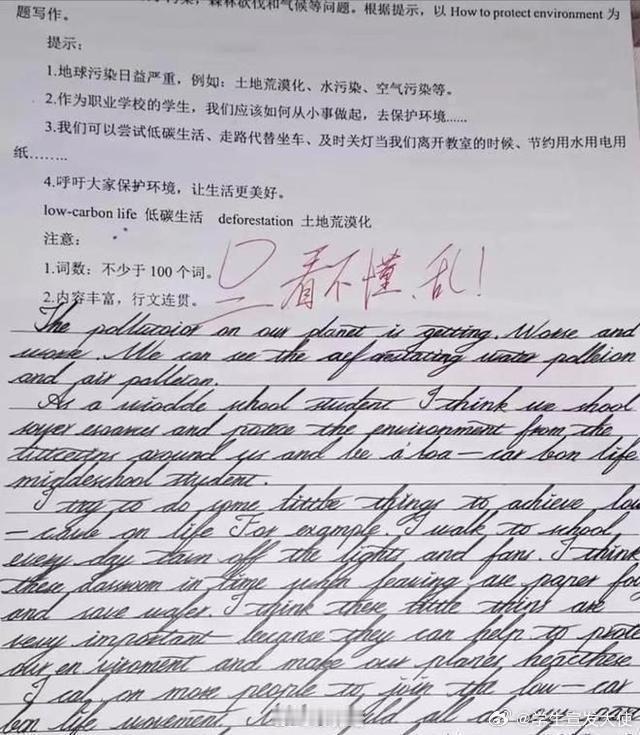 污染，森林砍伐和气候等问题。根据提示，以 How to protect environment 为
题写作。
提示：
1.地球污染日益严重，例如：土地荒漠化、水污染、空气污染等。
2.作为职业学校的学生，我们应该如何从小事做起，去保护环境......
3.我们可以尝试低碳生活、走路代替坐车、及时关灯当我们离开教室的时候、节约用水用电用
纸……..
4.呼吁大家保护环境，让生活更美好。
low-carbon life 低碳生活 deforestation 土地荒漠化
注意：
1.词数：不少于 100 个词。
2.内容丰富，行文连贯。
0
看不懂、乱！
The pollutoior on our planet is getting. Worse and
worse. We can see the water polleion
and air polleion.
As a student I think we shool
and the environment from the
around us and be a loa-car bon life
middeschool student.
I try to do some little things to achieve low
- on life For example. I walk to school
every day turn off the lights and fans. I think
these classroom in time when leaving are paper for
and save wafer. I think there little thins are
very important because they can help to prote
our en viroment and make our planes
I cal on more people to join the low-car
bon life movement.
@学生宣发大使